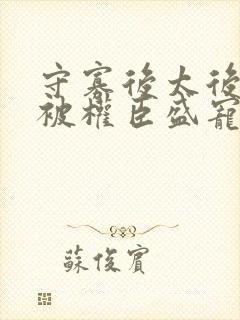 守寡後太後
被權臣盛寵
蘇俊賓